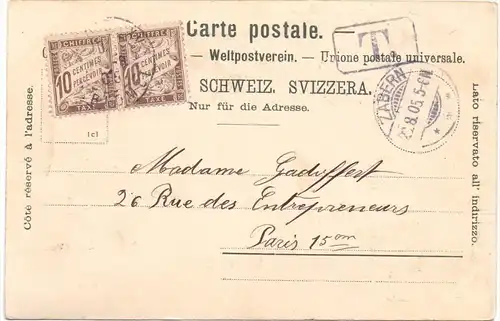 Carte postale.
Weltpostverein. — Union postale universale.
SCHWEIZ. SVIZZERA.
Nur für die Adresse.
Côté réservé à l'adresse.
Lato riservato all' indirizzo.
CHIFFRE CHIFFRE
10 CENTIMES À PERCEVOIR 10 CENTIMES À PERCEVOIR
TAXE TAXE
T.
ZABERN
8.05. 5-6N
Madame Gadiffert
26 Rue des Entrepreneurs
Paris 15em